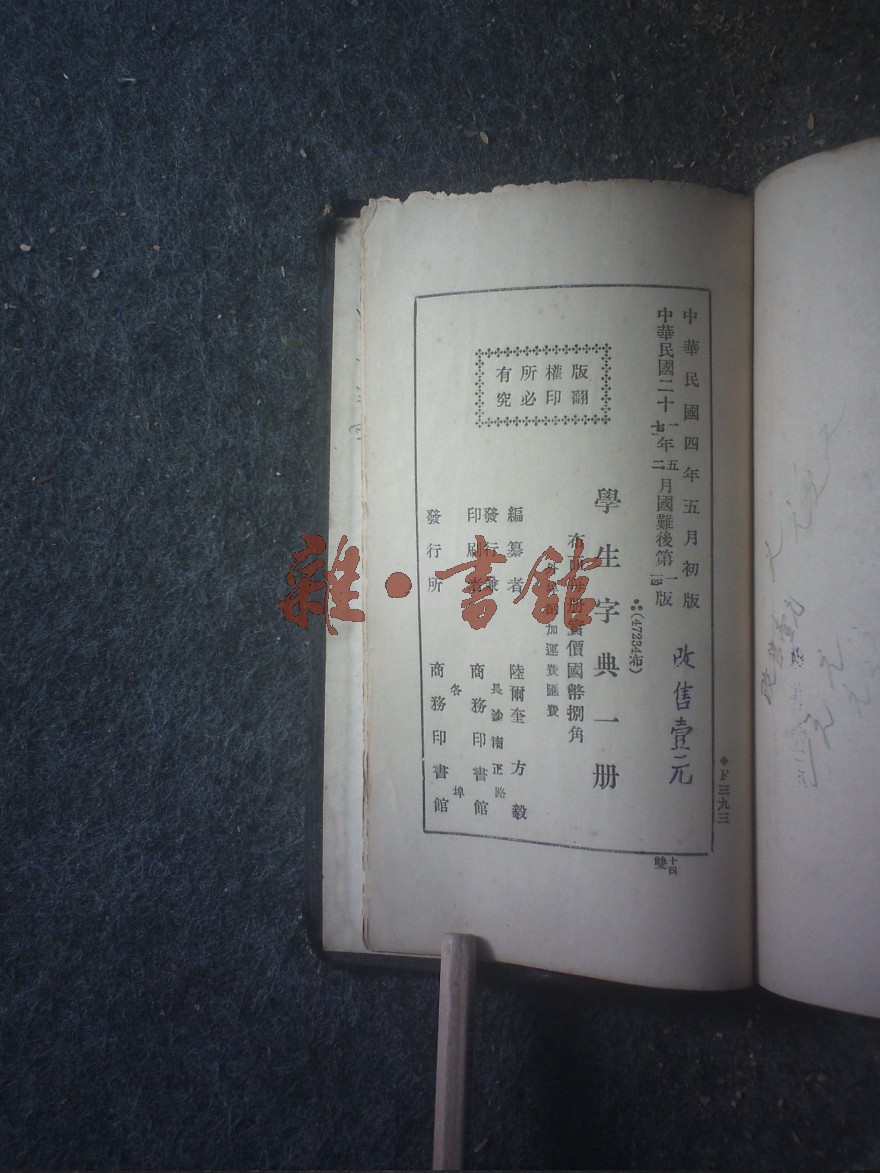 中華民國四年五月初版
中華民國二十一年五月國難後第一版
改售壹元
版權所有
翻印必究
(47234布)
學生字典一册
價國幣捌角
加運費匯費
編纂者 陸爾奎 方毅
長沙南正路
發行兼
印刷者 商務印書館
各埠
發行所 商務印書館
F三九三
十四
雙
雜·書館